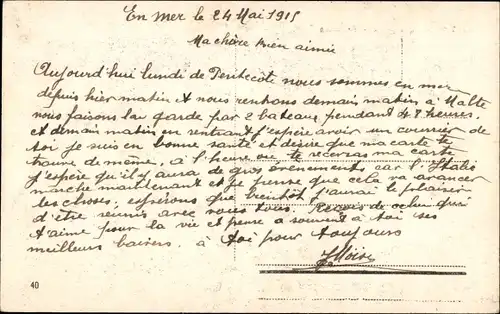 En Mer le 24 Mai 1915
Ma chère bien aimée
Aujourd'hui lundi de Pentecôte nous sommes en mer
depuis hier matin et nous rentrons demain matin à Malte
nous faisons la garde par 2 bateaux pendant 48 heures.
et demain matin en rentrant j'espère avoir un courrier de
toi je suis en bonne santé et désire que ma carte te
trouve de même, à l'heure ou te recevras ma carte
j'espère qu'il y aura de gros évenements car l'Italie
marche maintenant et je pense que cela va avancer
les choses, espérons que bientôt j'aurai le plaisir
d'être réunis avec vous tous. Reçois de celui qui
t'aime pour la vie et pense a souvent à toi ses
meilleurs baisers. à toi pour toujours
40